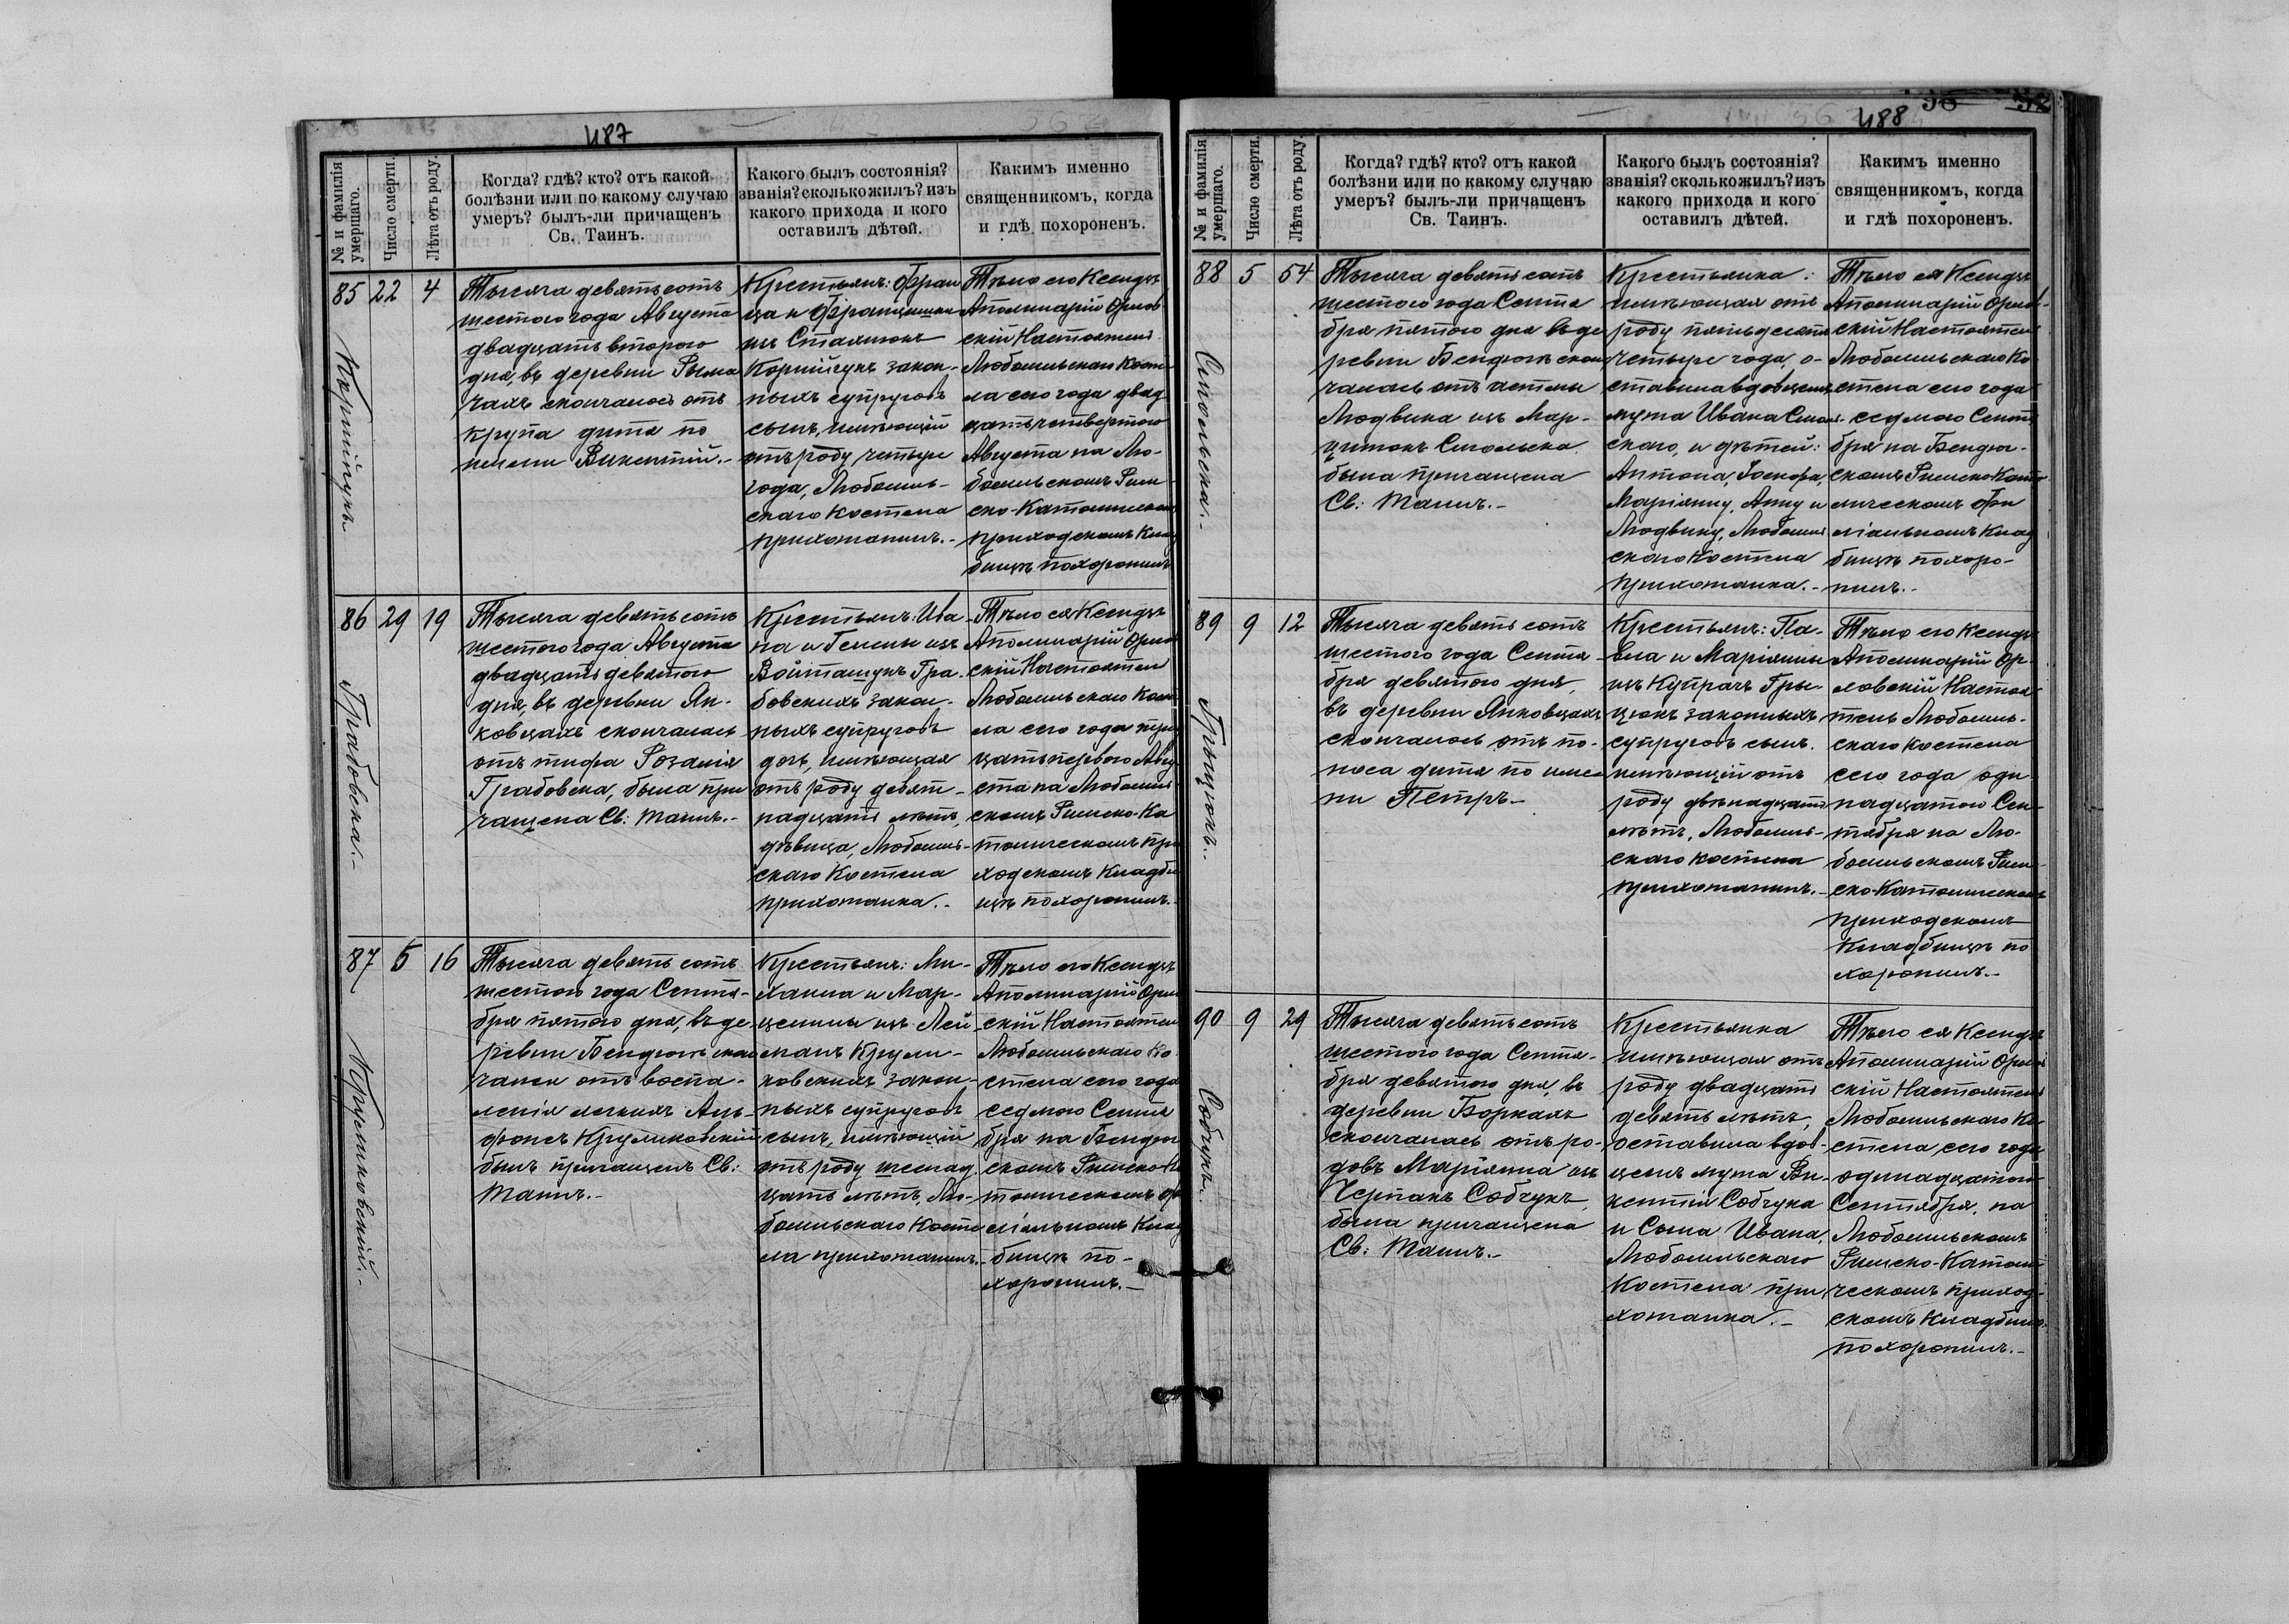 487
№ и фамилія умершаго.
Число смерти.
Лѣта отъ роду.
Когда? гдѣ? кто? отъ какой
болѣзни или по какому случаю
умеръ? былъ-ли причащенъ
Св. Таинъ.
Какого былъ состоянія?
званія? сколько жилъ? изъ
какого прихода и кого
оставилъ дѣтей.
Какимъ именно
священникомъ, когда
и гдѣ похороненъ.
85
Корнійчукъ
22
4
Тысяча девятьсотъ
шестого года Августа
двадцать второго
дня, въ деревни Рыма
чахъ скончалось отъ
крупа дитя по
имени Викентій.-
Крестьянъ: Фран
ца и Францишки
изъ Сталюкъ
Корнійчукъ закон-
ныхъ супруговъ
сынъ, имѣющій
отъ роду четыре
года, Любомль-
скаго Костела
прихожанинъ.-
Тѣло его Ксендзъ
Аполинарій Орлов
скій Настоятель
Любомльскаго Косте
ла сего года двад
цать четвертого
Августа на Лю-
бомльскомъ Рим-
ско-Католическомъ
приходскомъ Клад
бищѣ похоронилъ
86
Грабовска.-
29
19
Тысяча девятьсотъ
шестого года Августа
двадцать девятого
дня, въ деревни Ян-
ковцахъ скончалась
отъ тифа Розалія
Грабовска, была при
чащена Св: Таинъ.-
Крестьянъ: Ива
на и Гелены изъ
Войташукъ Гра-
бовскихъ закон-
ныхъ супруговъ
дочь, имѣющая
отъ роду девят-
надцать лѣтъ,
дѣвица, Любомль-
скаго Костела
прихожанка.-
Тѣло ея Ксендзъ
Аполинарій Орлов
скій Настоятель
Любомльскаго Косте
ла сего года трид
цать перваго Авгу
ста на Любомль
скомъ Римско-Ка
толическомъ при
ходскомъ Кладби
щѣ похоронилъ.-
87
Круликовскій.-
5
16
Тысяча девятьсотъ
шестого года Сентя-
бря пятого дня, въ де
ревни Бендюгѣ скон
чался отъ воспа-
ленія легкихъ Аль-
фонсъ Круликовскій
былъ причащенъ Св:
Таинъ.-
Крестьянъ: Ми-
хаила и Мар-
целины изъ Лей
манъ Крули-
ковскихъ закон-
ныхъ супруговъ
сынъ, имѣющій
отъ роду шестнад
цать лѣтъ, Лю-
бомльскаго Косте
ла прихожанинъ.-
Тѣло его Ксендзъ
Аполинарій Орлов
скій Настоятель
Любомльскаго Ко-
стела сего года
седмого Сентя
бря на Бендюг
скомъ Римско-Ка
толическомъ Фи
ліальномъ Клад
бищѣ по-
хоронилъ.-
488
№ и фамилія умершаго.
Число смерти.
Лѣта отъ роду.
Когда? гдѣ? кто? отъ какой
болѣзни или по какому случаю
умеръ? былъ-ли причащенъ
Св. Таинъ.
Какого былъ состоянія?
званія? сколько жилъ? изъ
какого прихода и кого
оставилъ дѣтей.
Какимъ именно
священникомъ, когда
и гдѣ похороненъ.
88
Смольска.-
5
54
Тысяча девятьсотъ
шестого года Сентя
бря пятого дня въ де
ревни Бендюгѣ скон
чалась отъ астмы
Людвика изъ Мар-
цинюкъ Смольска
была причащена
Св: Таинъ.-
Крестьянка:
имѣющая отъ
роду пятьдесятъ
четыре года, о-
ставила вдовцемъ
мужа Ивана Смоль-
скаго, и дѣтей:
Антона, Іосифа,
Маріянну, Анну и
Людвику, Любомль
скаго Костела
прихожанка.-
Тѣло ея Ксендзъ
Аполинарій Орлов-
скій Настоятель
Любомльскаго Ко-
стела сего года
седмого Сентя
бря на Бендюг-
скомъ Римско-Като
лическомъ Фи
ліальномъ Клад
бищѣ похоро-
нилъ.-
89
Грыцюкъ.-
9
12
Тысяча девятьсотъ
шестого года Сентя-
бря девятого дня,
въ деревни Янковцахъ
скончалось отъ по-
носа дитя по име
ни Петръ.-
Крестьянъ: Па-
вла и Маріянны
изъ Купрачъ Гры-
цюкъ законныхъ
супруговъ сынъ.
имѣющій отъ
роду двѣнадцать
лѣтъ, Любомль-
скаго Костела
прихожанинъ.-
Тѣло его Ксендзъ
Аполинарій Ор-
ловскій Настоя-
тель Любомль-
скаго Костела
сего года оди-
надцатого Сен-
тября на Лю-
бомльскомъ Рим-
ско-Католическомъ
приходскомъ
Кладбищѣ по
хоронилъ.-
90
Собчукъ.-
9
29
Тысяча девятьсотъ
шестого года Сентя-
бря девятого дня, въ
деревни Боркахъ
скончалась отъ ро-
довъ Маріянна изъ
Черпакъ Собчукъ,
была причащена
Св: Таинъ.-
Крестьянка
имѣющая отъ
роду двадцать
девять лѣтъ,
оставила вдов-
цемъ мужа Ви-
кентія Собчука
и Сына Ивана,
Любомльскаго
Костела при
хожанка.-
Тѣло ея Ксендзъ
Аполинарій Орлов
скій Настоятель
Любомльскаго Ко-
стела, сего года
одинадцатого
Сентября, на
Любомльскомъ
Римско-Католи
ческомъ приход-
скомъ Кладбищѣ
похоронилъ.-